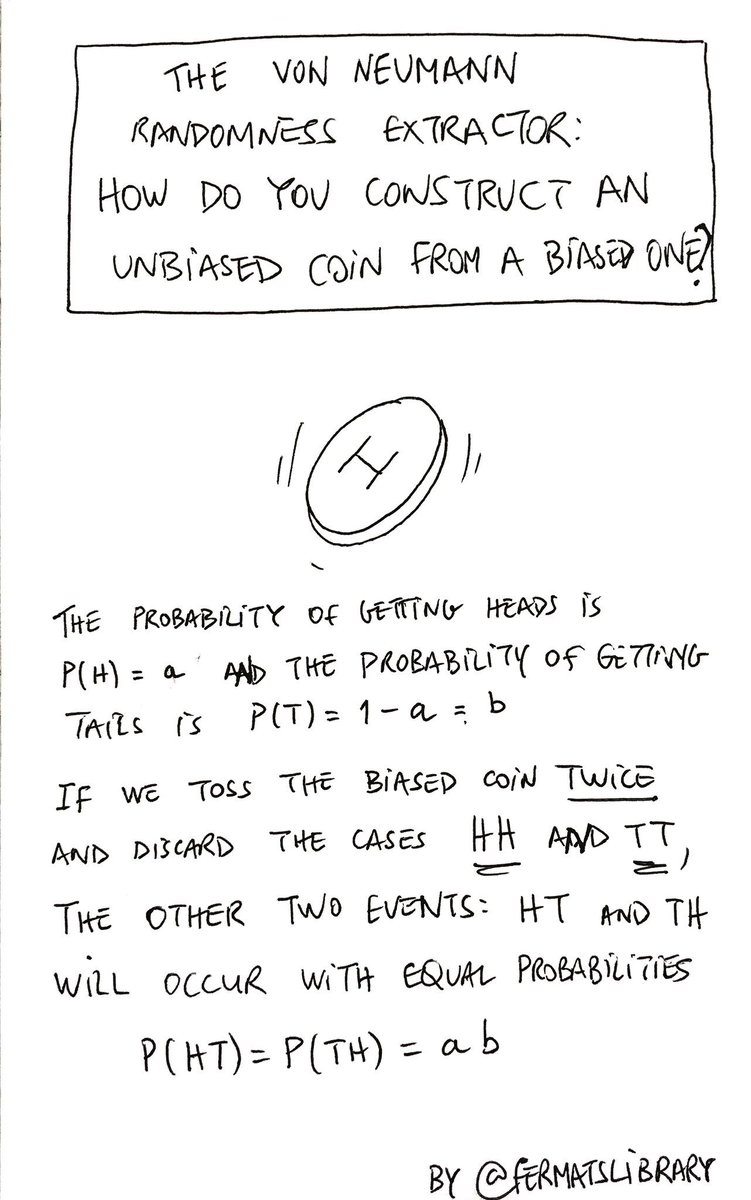 THE VON NEUMANN
RANDOMNESS EXTRACTOR:
HOW DO YOU CONSTRUCT AN
UNBIASED COIN FROM A BIASED ONE?
H
THE PROBABILITY OF GETTING HEADS IS
P(H) = a AND THE PROBABILITY OF GETTING
TAILS IS P(T) = 1 - a = b
IF WE TOSS THE BIASED COIN TWICE
AND DISCARD THE CASES HH AND TT,
THE OTHER TWO EVENTS: HT AND TH
WILL OCCUR WITH EQUAL PROBABILITIES
P(HT) = P(TH) = ab
BY @FERMATSLIBRARY